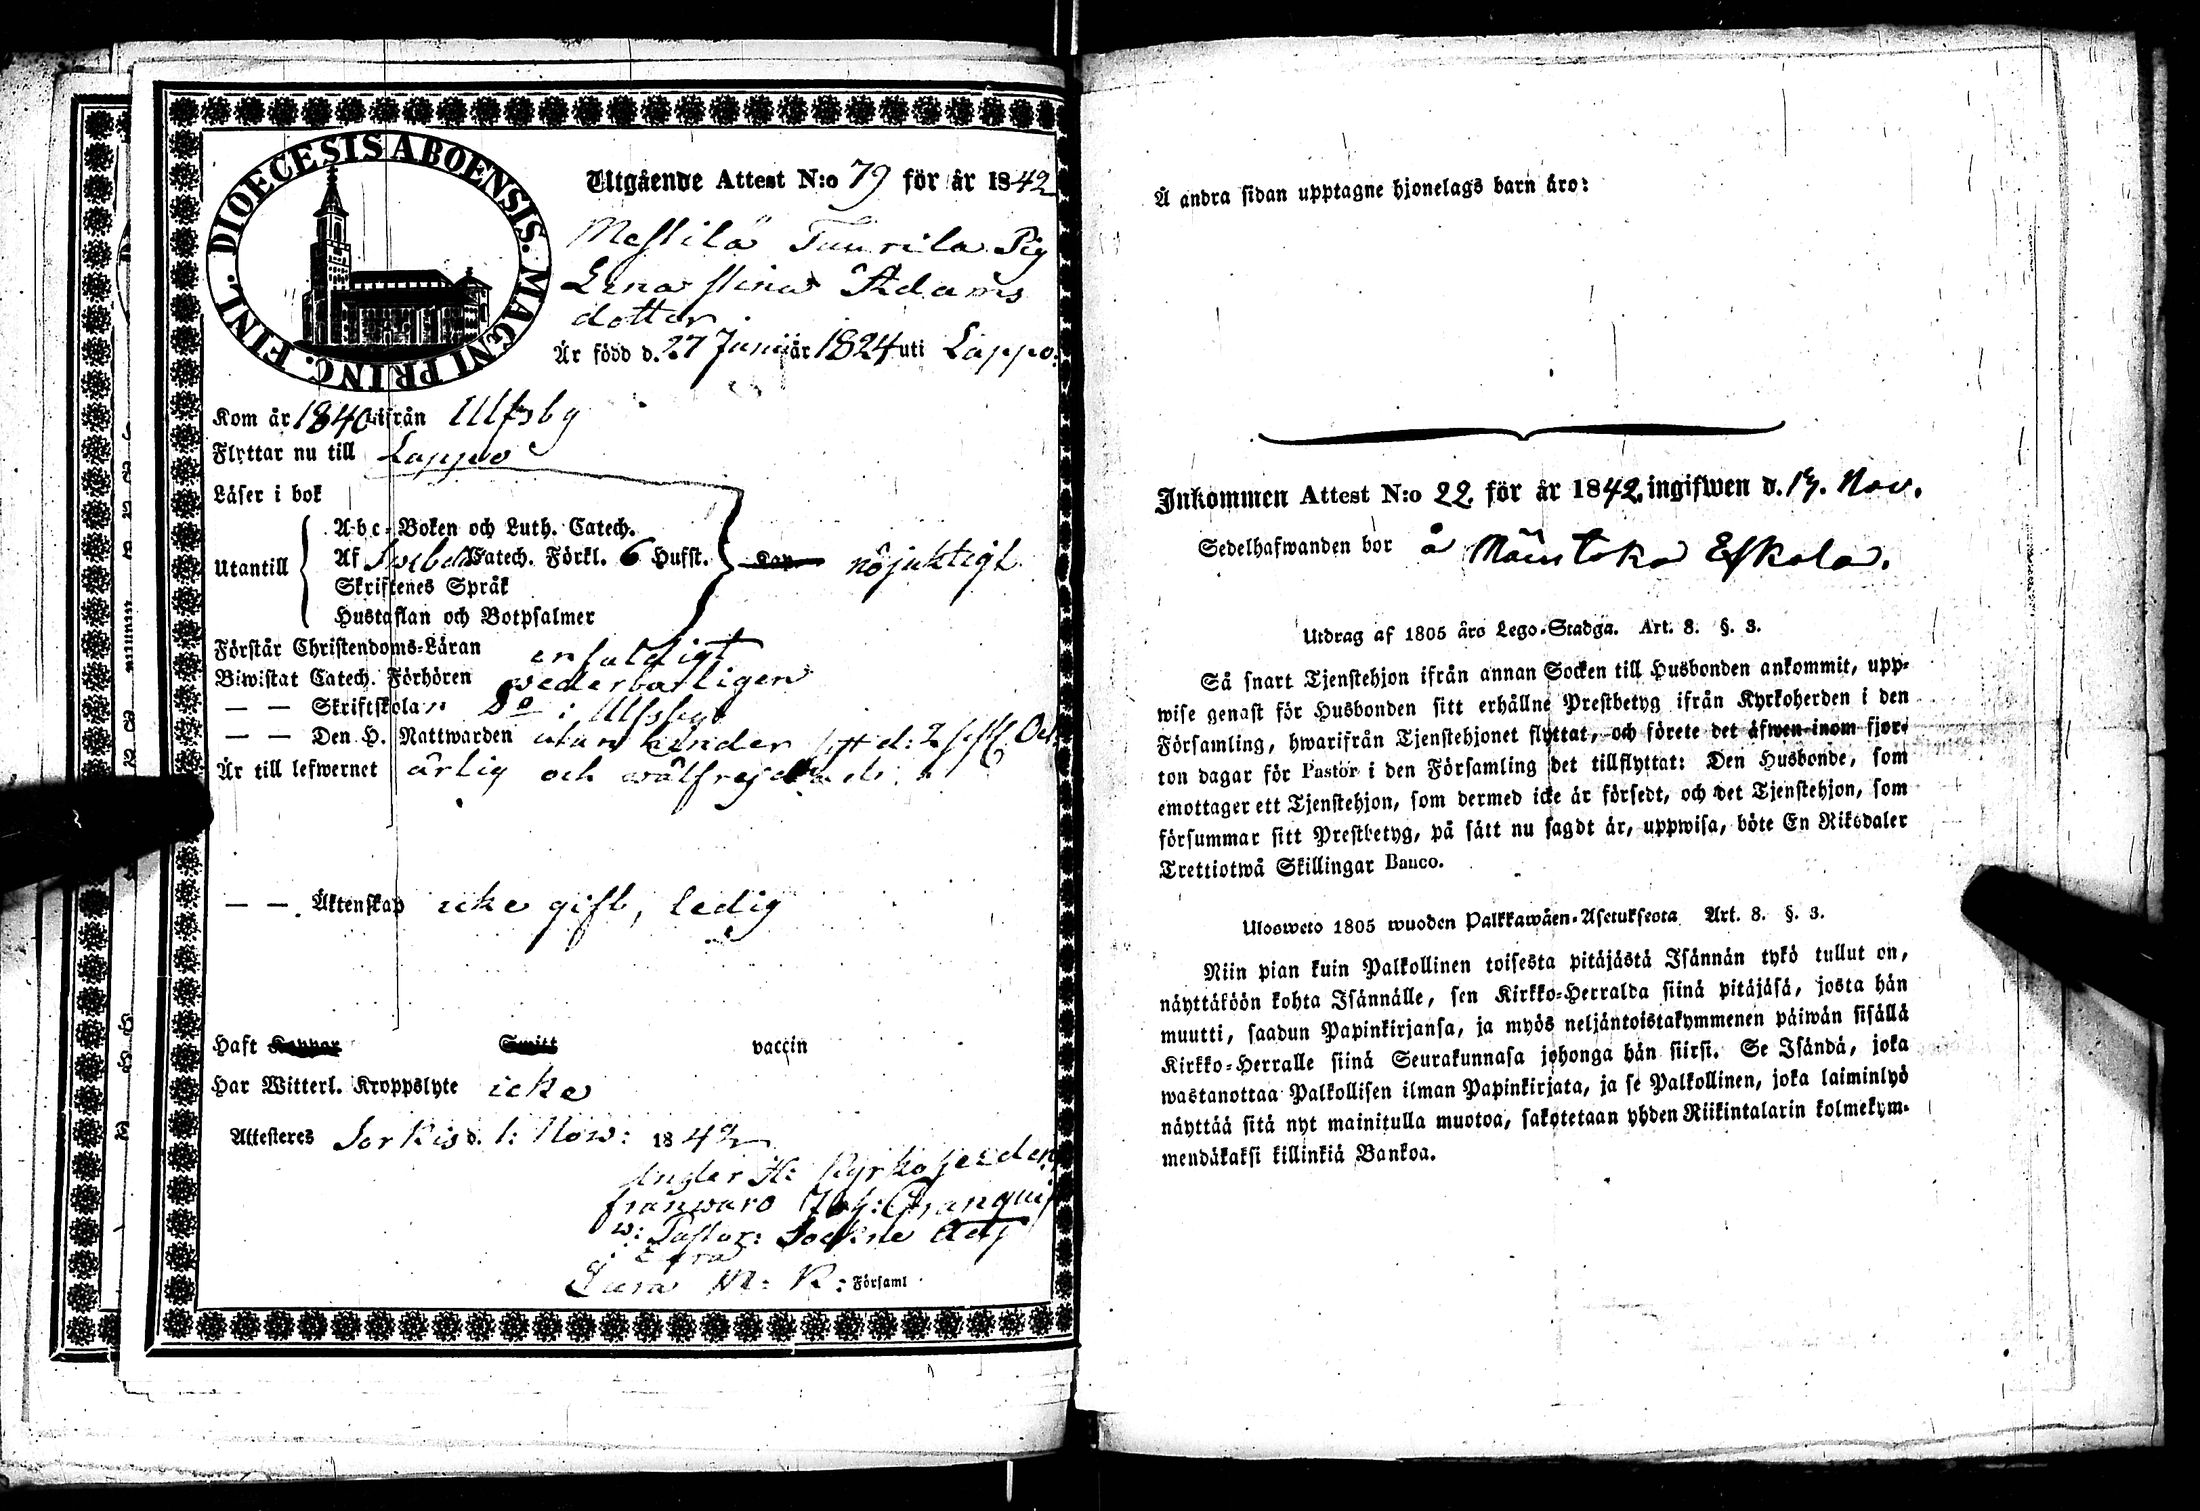 DIOECESIS ABOENSIS. MAGNI PRINC. FINL.
Utgående Attest N:o 79 för år 1842
Mestilä Tuurila Pig
Lena Stina Adams
dotter
Är född d. 27 Junii år 1824 uti Lappo.
Kom år 1840 ifrån Ulfsby
Flyttar nu till Lappo
Läser i bok
Utantill
A-b-c-Boken och Luth. Catech.
Af Svebelii Catech. Förkl. 6 Hufst.
nöjaktigt
Skriftenes Språk
Hustaflan och Botpsalmer
Förstår Christendoms-Läran enfaldigt
Biwistat Catech. Förhören wederbörligen
— — Skriftskolan Do i Ulfsby
— — Den H. Nattwarden utan hinder sist d: 2 sistl. Oct.
Är till lefwernet ärlig och wälfrejdad
— — Äktenskap icke gift, ledig
Haft Koppor Smitt vaccin
Har Witterl. Kroppslyte icke
Attesteres Sorkis d. 1: Now: 1842
Under H: Kyrkoherdens
frånwaro Joh: Granquist
w: Pastor: Sockne Adj
i Efra
Eura M: K: Församl
Å andra sidan upptagne hjonelags barn äro:
Inkommen Attest N:o 22 för år 1842 ingifwen d. 17. Nov.
Sedelhafwanden bor å Näistoka Eskola.
Utdrag af 1805 års Lego-Stadga. Art. 8. §. 3.
Så snart Tjenstehjon ifrån annan Socken till Husbonden ankommit, upp-
wise genast för Husbonden sitt erhållne Prestbetyg ifrån Kyrkoherden i den
Församling, hwarifrån Tjenstehjonet flyttat, och förete det äfwen inom fjor-
ton dagar för Pastor i den Församling det tillflyttat: Den Husbonde, som
emottager ett Tjenstehjon, som dermed icke är försedt, och det Tjenstehjon, som
försummar sitt Prestbetyg, på sätt nu sagdt är, uppwisa, böte En Riksdaler
Trettiotwå Skillingar Banco.
Ulosweto 1805 wuoden Palkkawäen-Asetuksesta Art. 8. §. 3.
Niin pian kuin Palkollinen toisesta pitäjästä Isännän tykö tullut on,
näyttäköön kohta Isännälle, sen Kirkko-Herralda siinä pitäjäsä, josta hän
muutti, saadun Papinkirjansa, ja myös neljäntoistakymmenen päiwän sisällä
Kirkko-Herralle siinä Seurakunnasa johonga hän siirsi. Se Isändä, joka
wastanottaa Palkollisen ilman Papinkirjata, ja se Palkollinen, joka laiminlyö
näyttää sitä nyt mainitulla muotoa, sakotetaan yhden Riikintalarin kolmekym-
mendäkaksi killinkiä Bankoa.